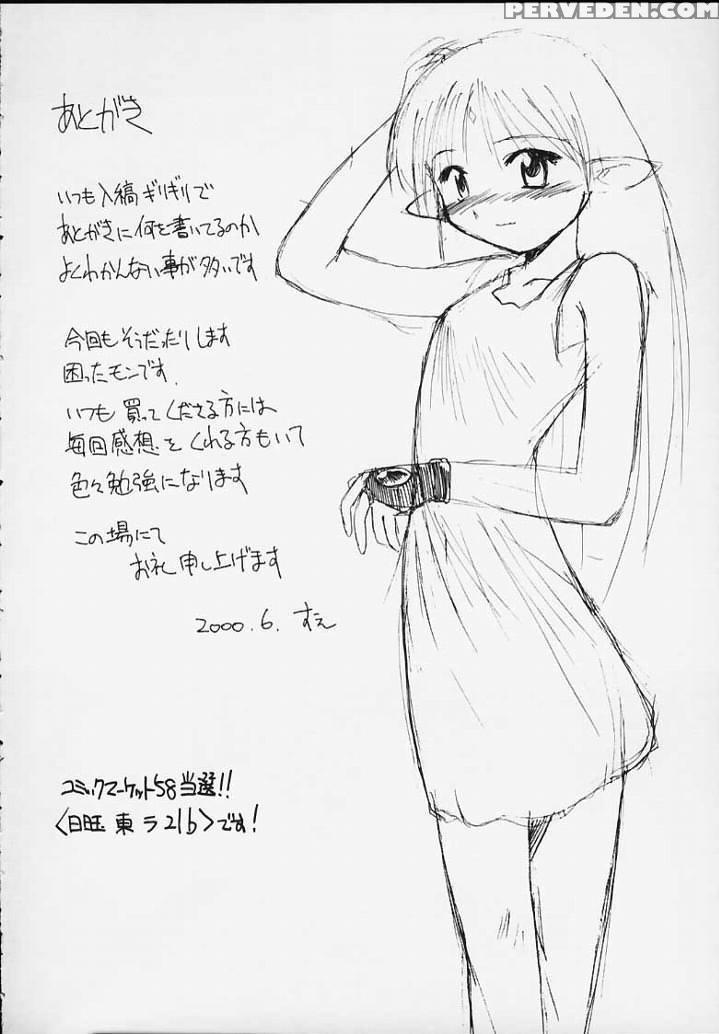 PERVEDEN.COM
あとがき
いつも入稿ギリギリで
あとがきに何を書いてるのか
よくわかんない事が多いです
今回もそうだったりします
困ったモンです.
いつも買ってくださる方には
毎回感想をくれる方もいて
色々勉強になります
この場にて
お礼申し上げます
2000.6. すえ
コミックマーケット58当選!!
<日曜 東 ラ21b>です!